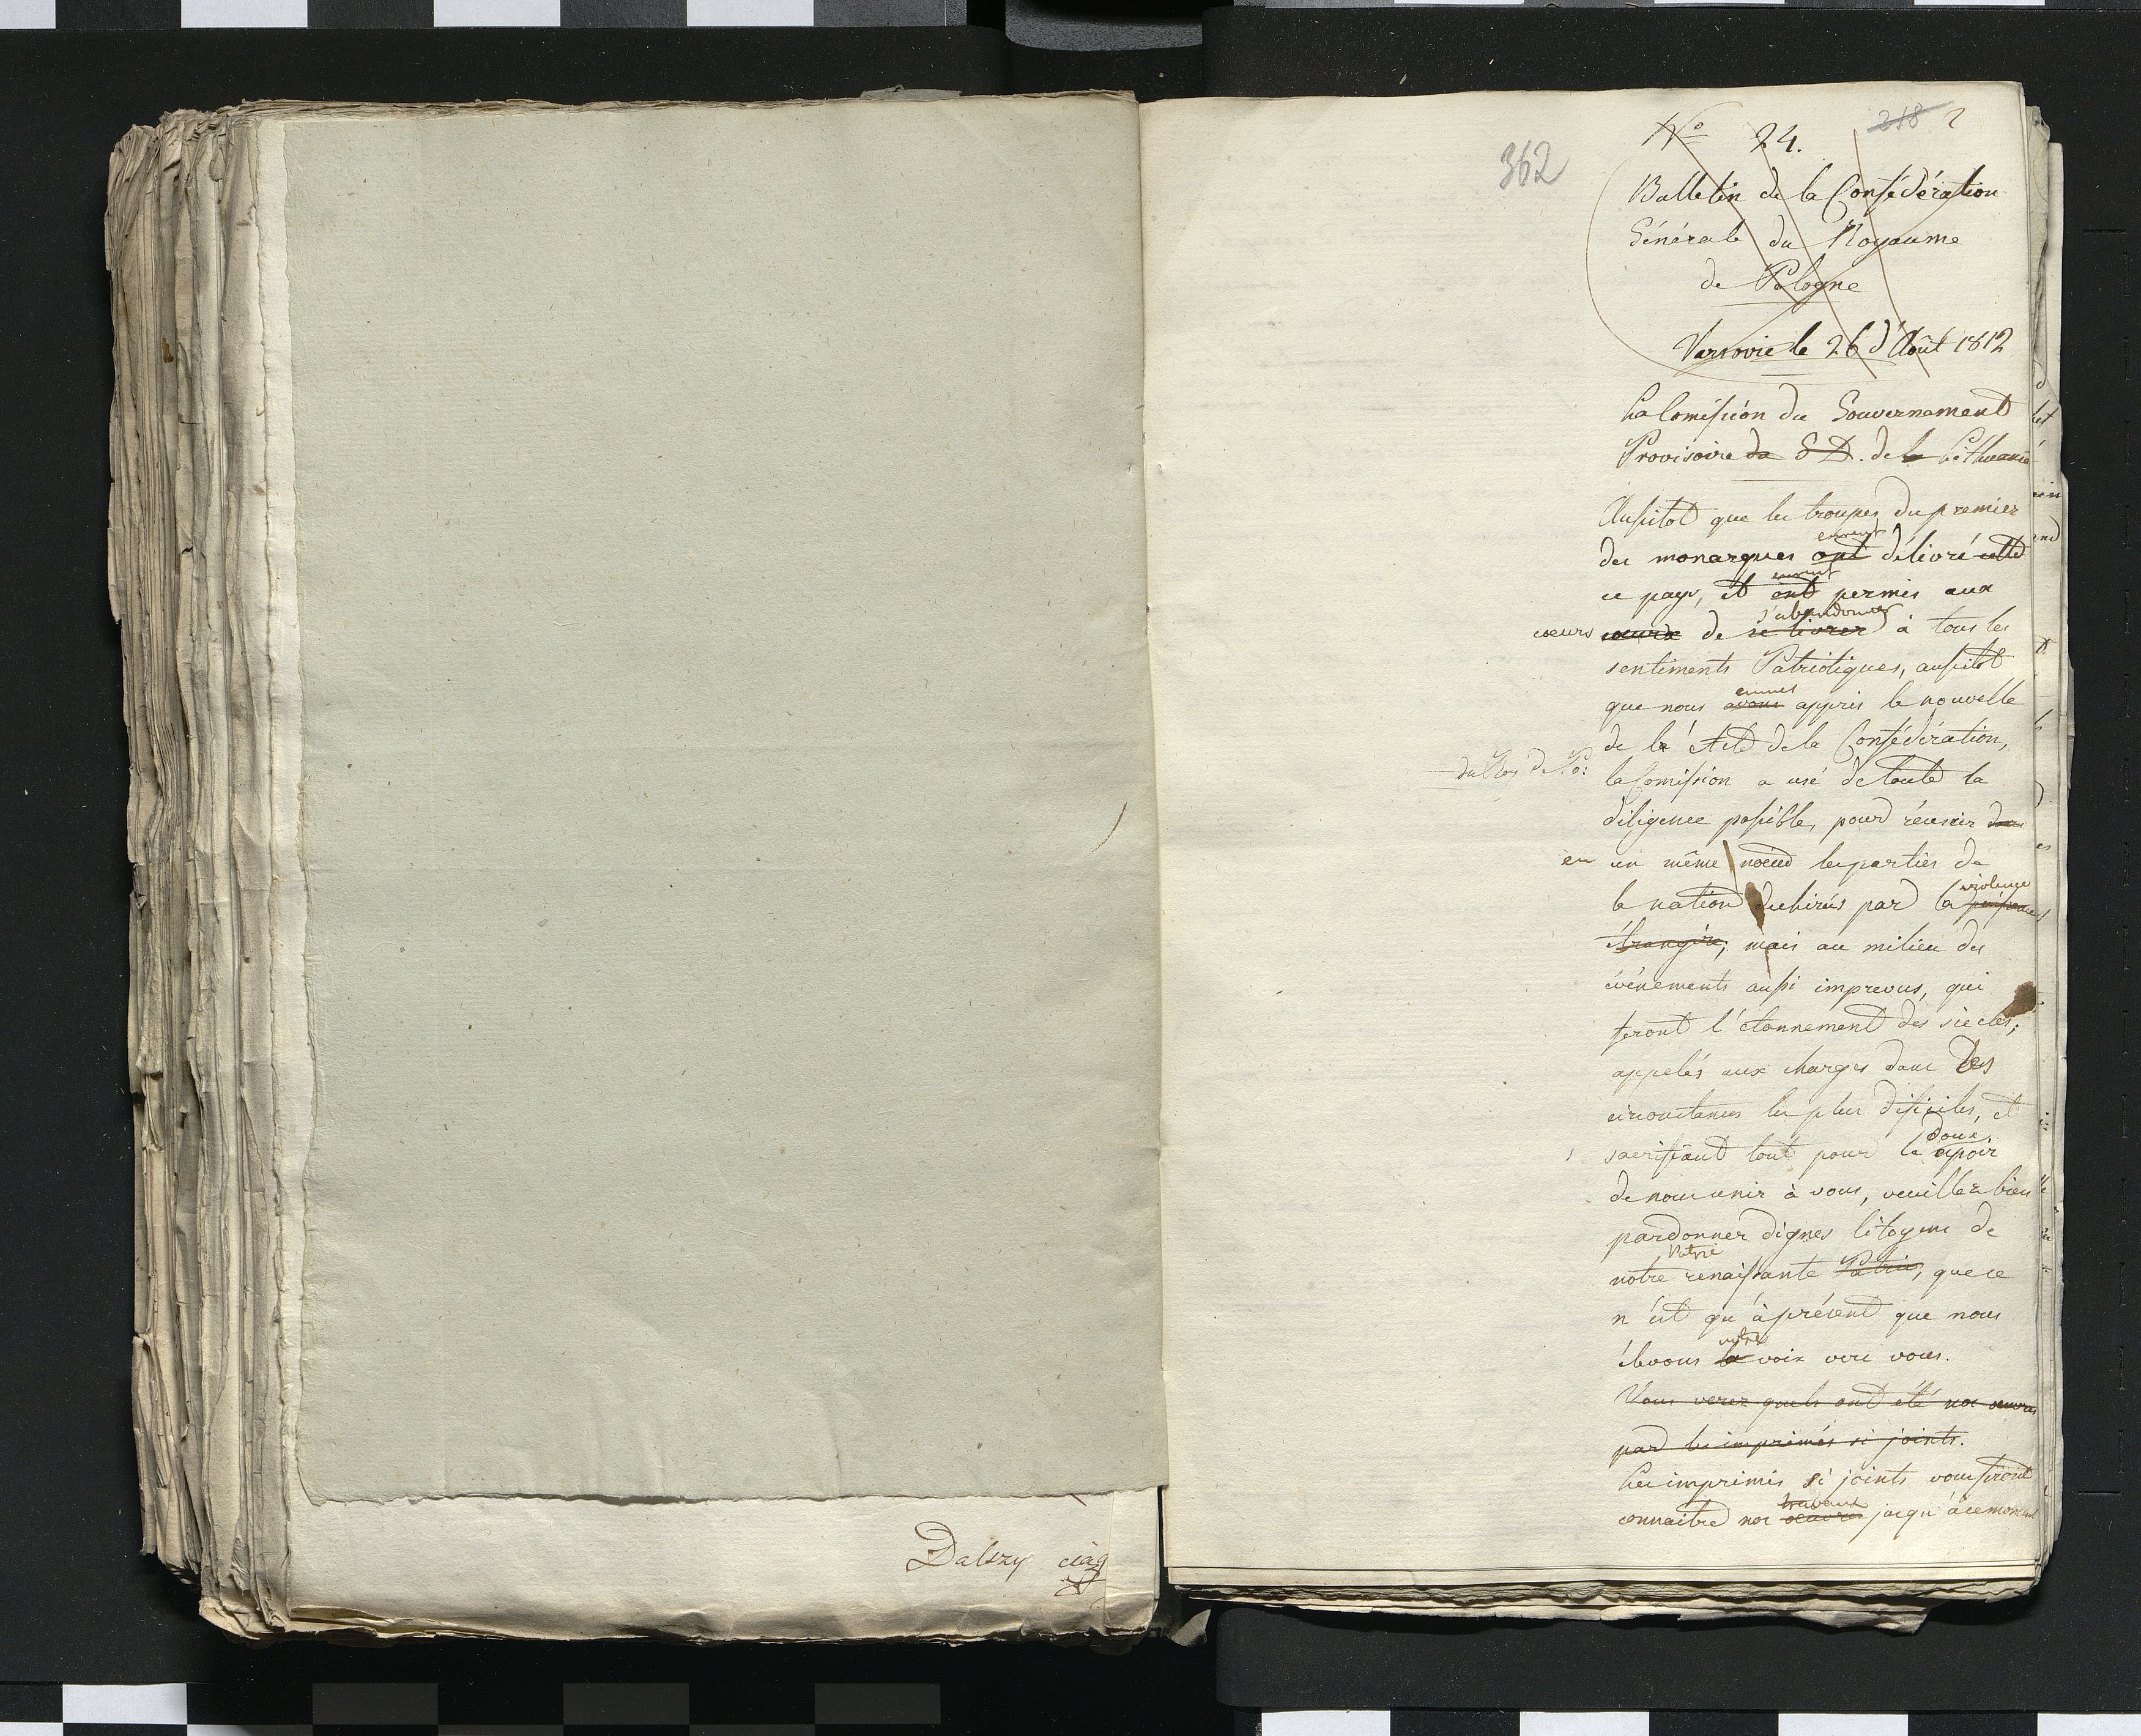 Dalszy ciąg
362
218 2
No 24.
Bulletin de la Confédération
Générale du Royaume
de Pologne
Varsovie le 26 d'Août 1812
La Comission du Gouvernement
Provisoire du G D. de la Lithuanie
Aussitot que les troupes du premier
eurent
des monarques ont délivré cette
eurent
ce pays, et ont permis aux
s'abandonner
coeurs coeurs de se livrer à tous les
sentiments Patriotiques, aussitot
eumes
que nous avons appris la nouvelle
de l'Acte de la Confédération,
la Comission a usé de toute la
diligence possible, pour réunir dans
en un même noeud les parties de
violence
la nation dechirés par la puissance
étrangère, mais au milieu des
événements aussi imprevus, qui
feront l'étonnement des siècles,
appelés aux charges dans des
circonstances les plus dificiles, et
doux
sacrifiant tout pour le espoir
de nous unir à vous, veuillez bien
pardonner dignes Citoyens de
Patrie
notre renaissante Patrie, que ce
n'est qu'à présent que nous
notre
élevons la voix vers vous.
Vous verez quels ont été nos oeuvres
par les imprimés si joints.
Les imprimés si joints vous feront
travaux
connaitre nos oeuvres jusqu'à ce moment